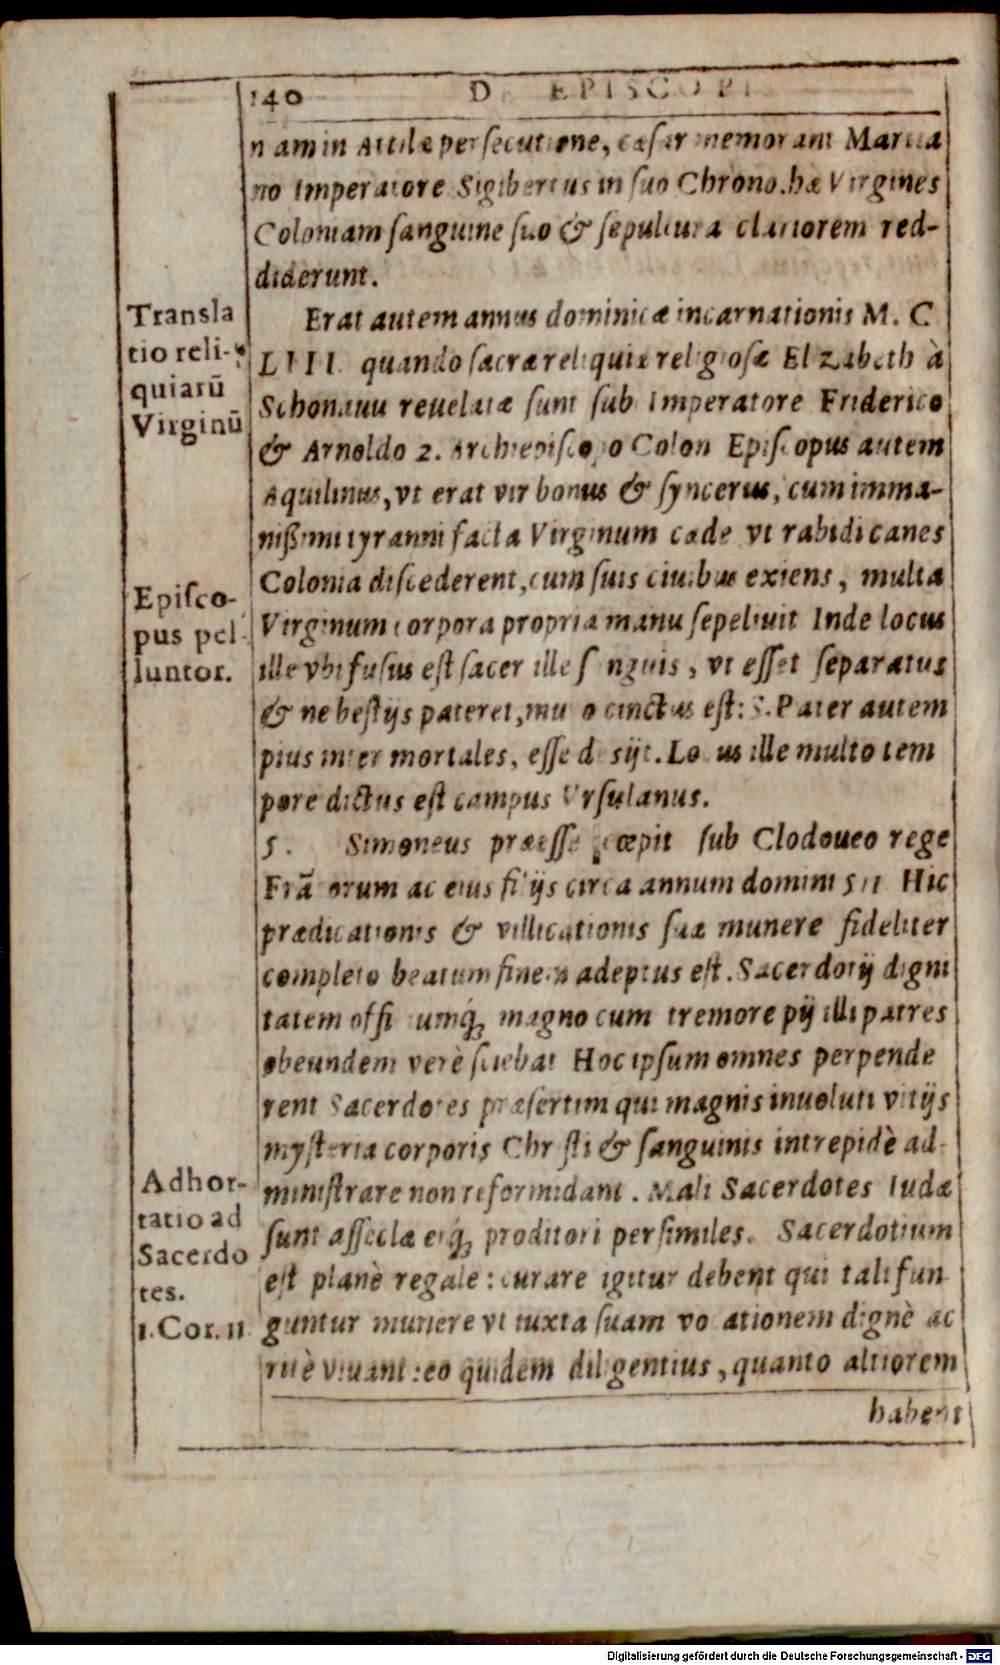 140 DE EPISCOPI
nam in Attilæ persecutione, cæsar memorant Martia
no Imperatore Sigibertus in suo Chrono. hæ Virgines
Coloniam sanguine suo & sepultura clariorem red-
diderunt.
Transla
tio reli-
quiarũ
Virginũ
Erat autem annus dominicæ incarnationis M. C
LIII. quando sacræ reliquiæ religiosæ Elizabeth à
Schonauu reuelatæ sunt sub Imperatore Friderico
& Arnoldo 2. Archiepiscopo Colon Episcopus autem
Aquilinus, vt erat vir bonus & syncerus, cum imma-
nißimi tyranni facta Virginum cæde vt rabidi canes
Colonia discederent, cum suis ciuibus exiens, multa
Episco-
pus pel
luntor.
Virginum corpora propria manu sepeliuit Inde locus
ille vbi fusus est sacer ille sanguis, vt esset separatus
& ne bestijs pateret, muro cinctus est: S. Pater autem
pius inter mortales, esse desijt. Locus ille multo tem
pore dictus est campus Vrsulanus.
5. Simoneus præesse cœpit sub Clodoueo rege
Frãcorum ac eius filijs circa annum domini 511 Hic
prædicationis & villicationis suæ munere fideliter
completo beatum finem adeptus est. Sacerdotij digni
tatem officiumq́ magno cum tremore pij illi patres
obeundem verè sciebat Hoc ipsum omnes perpende
rent Sacerdotes præsertim qui magnis inuoluti vitijs
mysteria corporis Christi & sanguinis intrepidè ad-
Adhor-
tatio ad
Sacerdo
tes.
1. Cor. 11
ministrare non reformidant. Mali Sacerdotes Iudæ
sunt asseclæ eiq́ proditori persimiles. Sacerdotium
est planè regale: curare igitur debent qui tali fun
guntur munere vt iuxta suam vocationem dignè ac
ritè viuant: eo quidem diligentius, quanto altiorem
habent
Digitalisierung gefördert durch die Deutsche Forschungsgemeinschaft - DFG